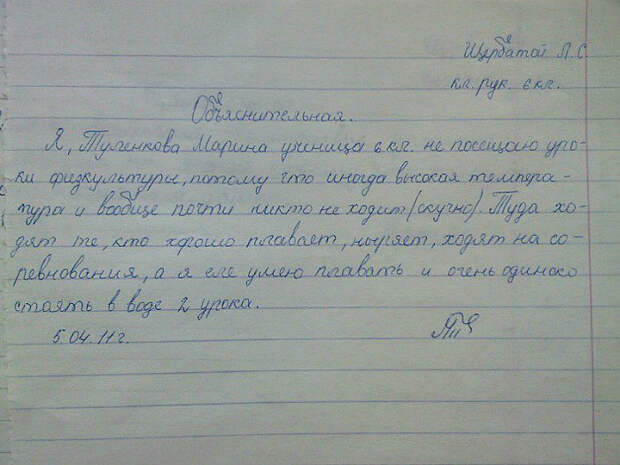 Щербатой Л.С
кл. рук. 6 кл.
Объяснительная.
Я, Туленкова Марина ученица 6 кл. не посещаю уро-
ки физкультуры, потому что иногда высокая темпера-
тура и вообще почти никто не ходит (скучно). Туда хо-
дят те, кто хорошо плавает, ныряет, ходят на со-
ревнования, а я еле умею плавать и очень одиноко
стоять в воде 2 урока.
5.04.11 г.